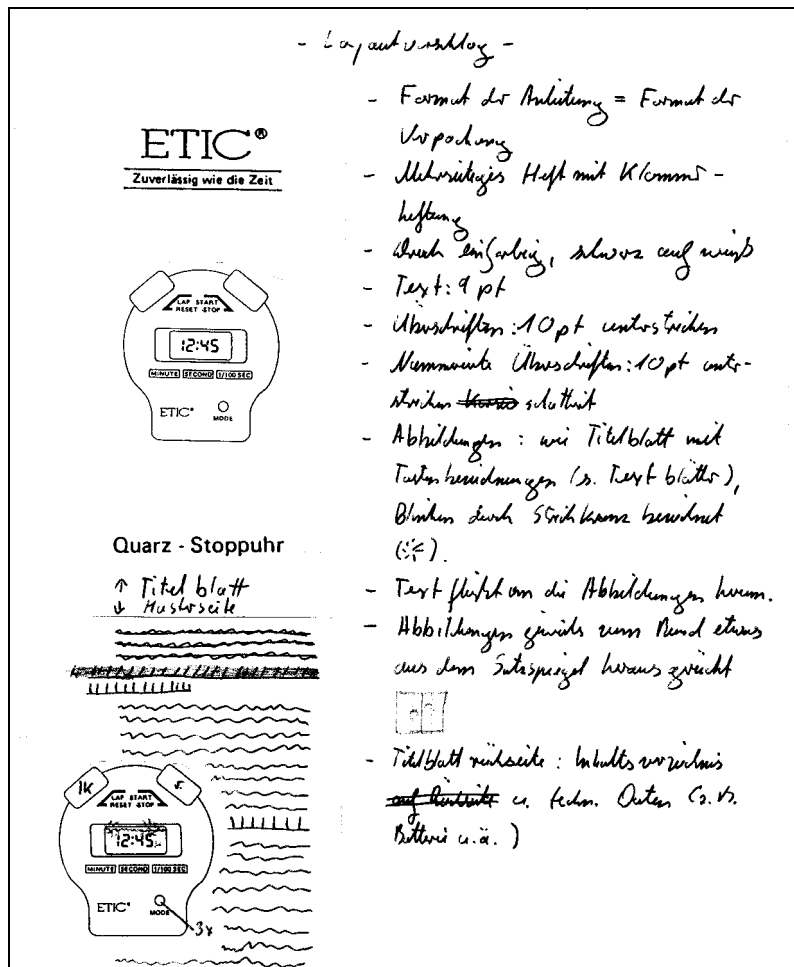 - Layoutvorschlag -
ETIC®
Zuverlässig wie die Zeit
LAP START
RESET STOP
12:45
MINUTE SECOND 1/100 SEC
ETIC®
MODE
Quarz - Stoppuhr
↑ Titelblatt
↓ Musterseite
1x
LAP START
RESET STOP
12:45
MINUTE SECOND 1/100 SEC
ETIC®
MODE
3x
- Format der Anleitung = Format der
Verpackung
- Mehrseitiges Heft mit Klammer-
heftung
- Druck einfarbig, schwarz auf weiß
- Text: 9 pt
- Überschriften: 10 pt unterstrichen
- Nummerierte Überschriften: 10 pt unter-
strichen schattiert
- Abbildungen: wie Titelblatt mit
Tastenbezeichnungen (s. Textblätter),
Blinken durch Strichkranz bezeichnet
- Text fließt um die Abbildungen herum.
- Abbildungen jeweils zum Rand etwas
aus dem Satzspiegel herausgerückt
- Titelblattrückseite: Inhaltsverzeichnis
u. techn. Daten (z.B.
Batterie u.ä.)